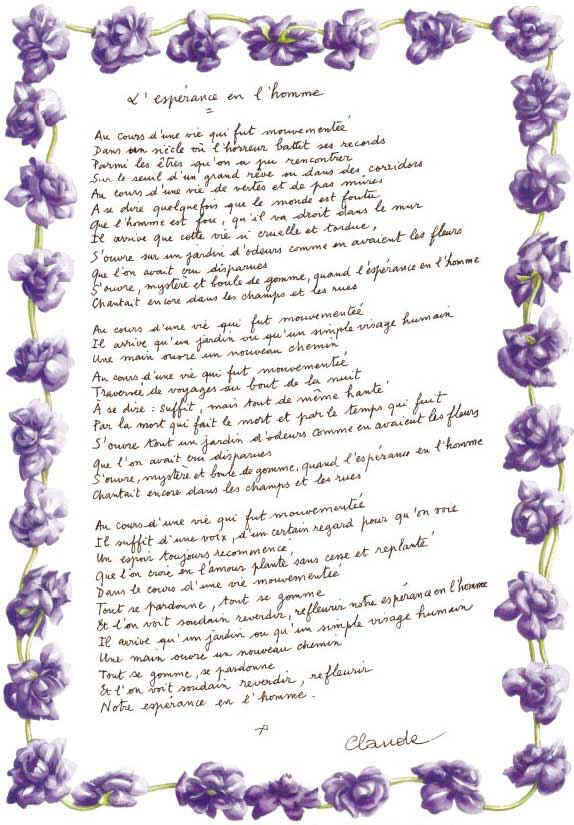 L'espérance en l'homme
Au cours d'une vie qui fut mouvementée
Dans un siècle où l'horreur battit ses records
Parmi les êtres qu'on a pu rencontrer
Sur le seuil d'un grand rêve ou dans des corridors
Au cours d'une vie de vertes et de pas mûres
A se dire quelquefois que le monde est foutu
Que l'homme est fou, qu'il va droit dans le mur
Il arrive que cette vie si cruelle et tordue,
S'ouvre sur un jardin d'odeurs comme en avaient les fleurs
Que l'on avait cru disparues
S'ouvre, mystère et boule de gomme, quand l'espérance en l'homme
Chantait encore dans les champs et les rues
Au cours d'une vie qui fut mouvementée
Il arrive qu'un jardin ou qu'un simple visage humain
Une main ouvre un nouveau chemin
Au cours d'une vie qui fut mouvementée
Traversée de voyages au bout de la nuit
À se dire : suffit, mais tout de même hanté
Par la mort qui fait le mort et par le temps qui fuit
S'ouvre tout un jardin d'odeurs comme en avaient les fleurs
Que l'on avait cru disparues
S'ouvre, mystère et boule de gomme, quand l'espérance en l'homme
Chantait encore dans les champs et les rues
Au cours d'une vie qui fut mouvementée
Il suffit d'une voix, d'un certain regard pour qu'on voie
Un espoir toujours recommencé,
Que l'on croie en l'amour planté sans cesse et replanté
Dans le cours d'une vie mouvementée
Tout se pardonne, tout se gomme
Et l'on voit soudain reverdir, refleurir notre espérance en l'homme
Il arrive qu'un jardin ou qu'un simple visage humain
Une main ouvre un nouveau chemin
Tout se gomme, se pardonne
Et l'on voit soudain reverdir, refleurir
Notre espérance en l'homme.
Claude